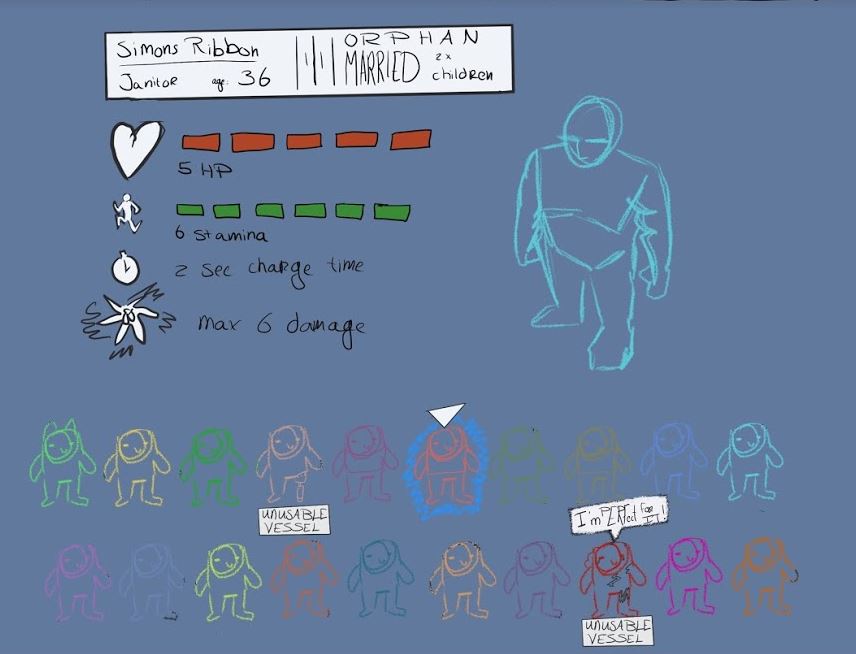 Simons Ribbon
Janitor age: 36
ORPHAN
MARRIED 2x children
5 HP
6 stamina
2 sec charge time
max 6 damage
UNUSABLE
VESSEL
I'm PERFect for
IT!
UNUSABLE
VESSEL